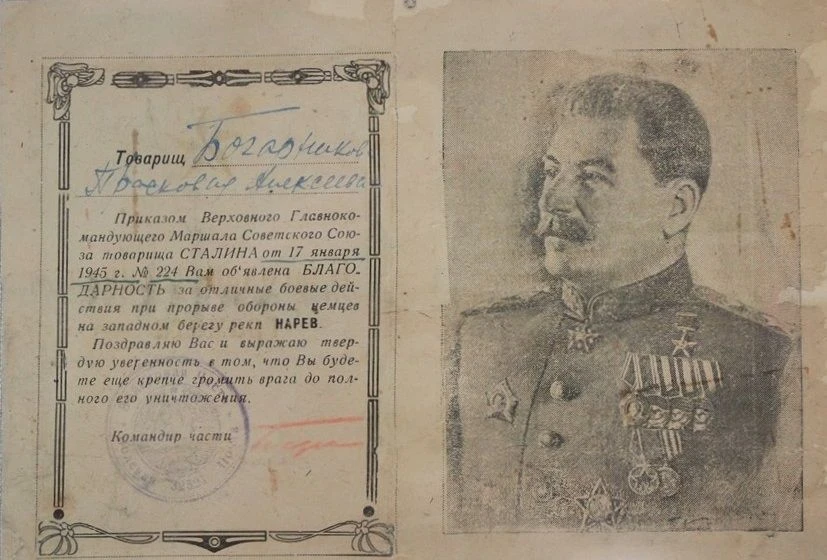 Товарищ Богатиков
Прасковия Алексеева
Приказом Верховного Главноко-
мандующего Маршала Советского Сою-
за товарища СТАЛИНА от 17 января
1945 г. № 224 Вам об'явлена БЛАГО-
ДАРНОСТЬ за отличные боевые дей-
ствия при прорыве обороны немцев
на западном берегу реки НАРЕВ.
Поздравляю Вас и выражаю твер-
дую уверенность в том, что Вы буде-
те еще крепче громить врага до пол-
ного его уничтожения.
Командир части